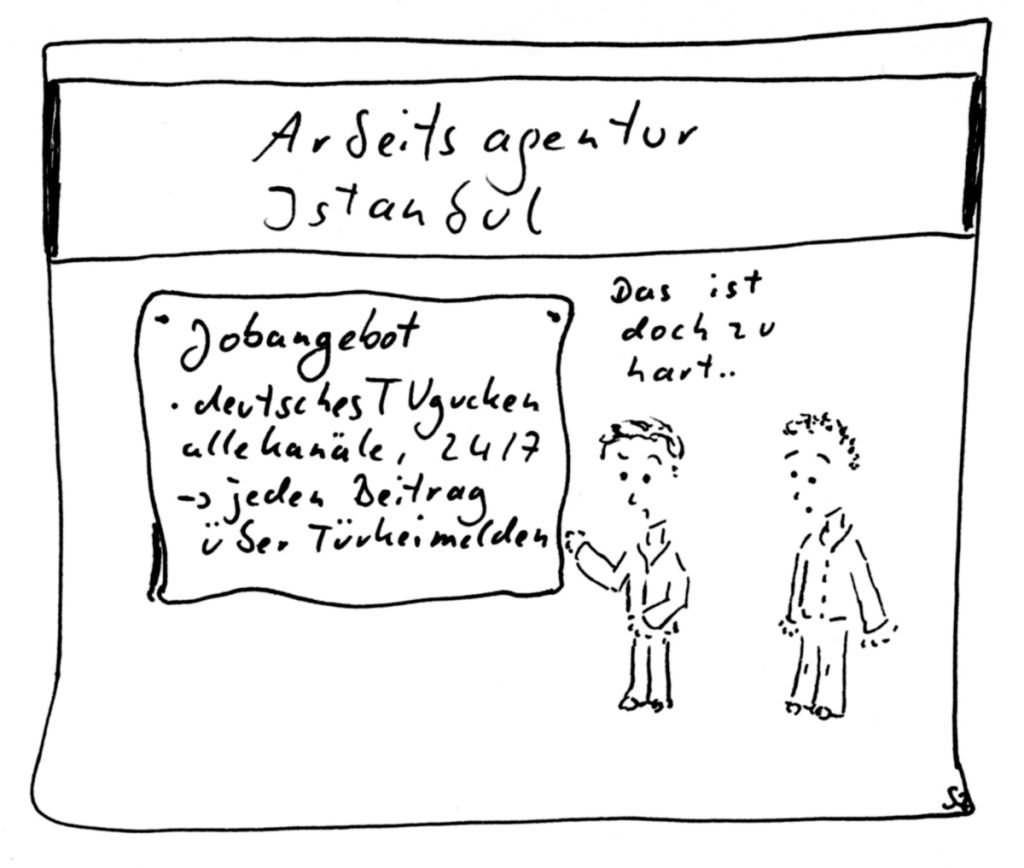 Arbeitsagentur
Istanbul
Jobangebot
• deutsches TV gucken
alle kanäle, 24/7
→ jeden Beitrag
über Türkei melden
Das ist
doch zu
hart..